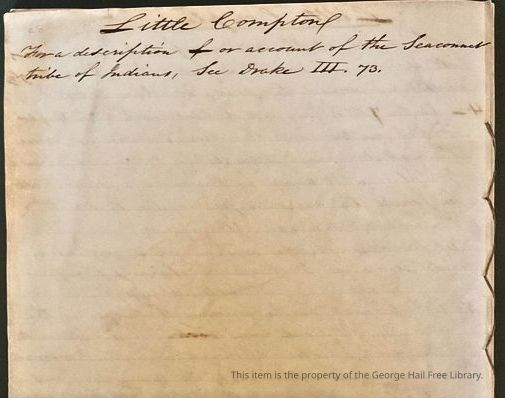 Little Compton
For a description f or account of the Seaconnet
tribe of Indians, See Drake III. 73.
This item is the property of the George Hail Free Library.